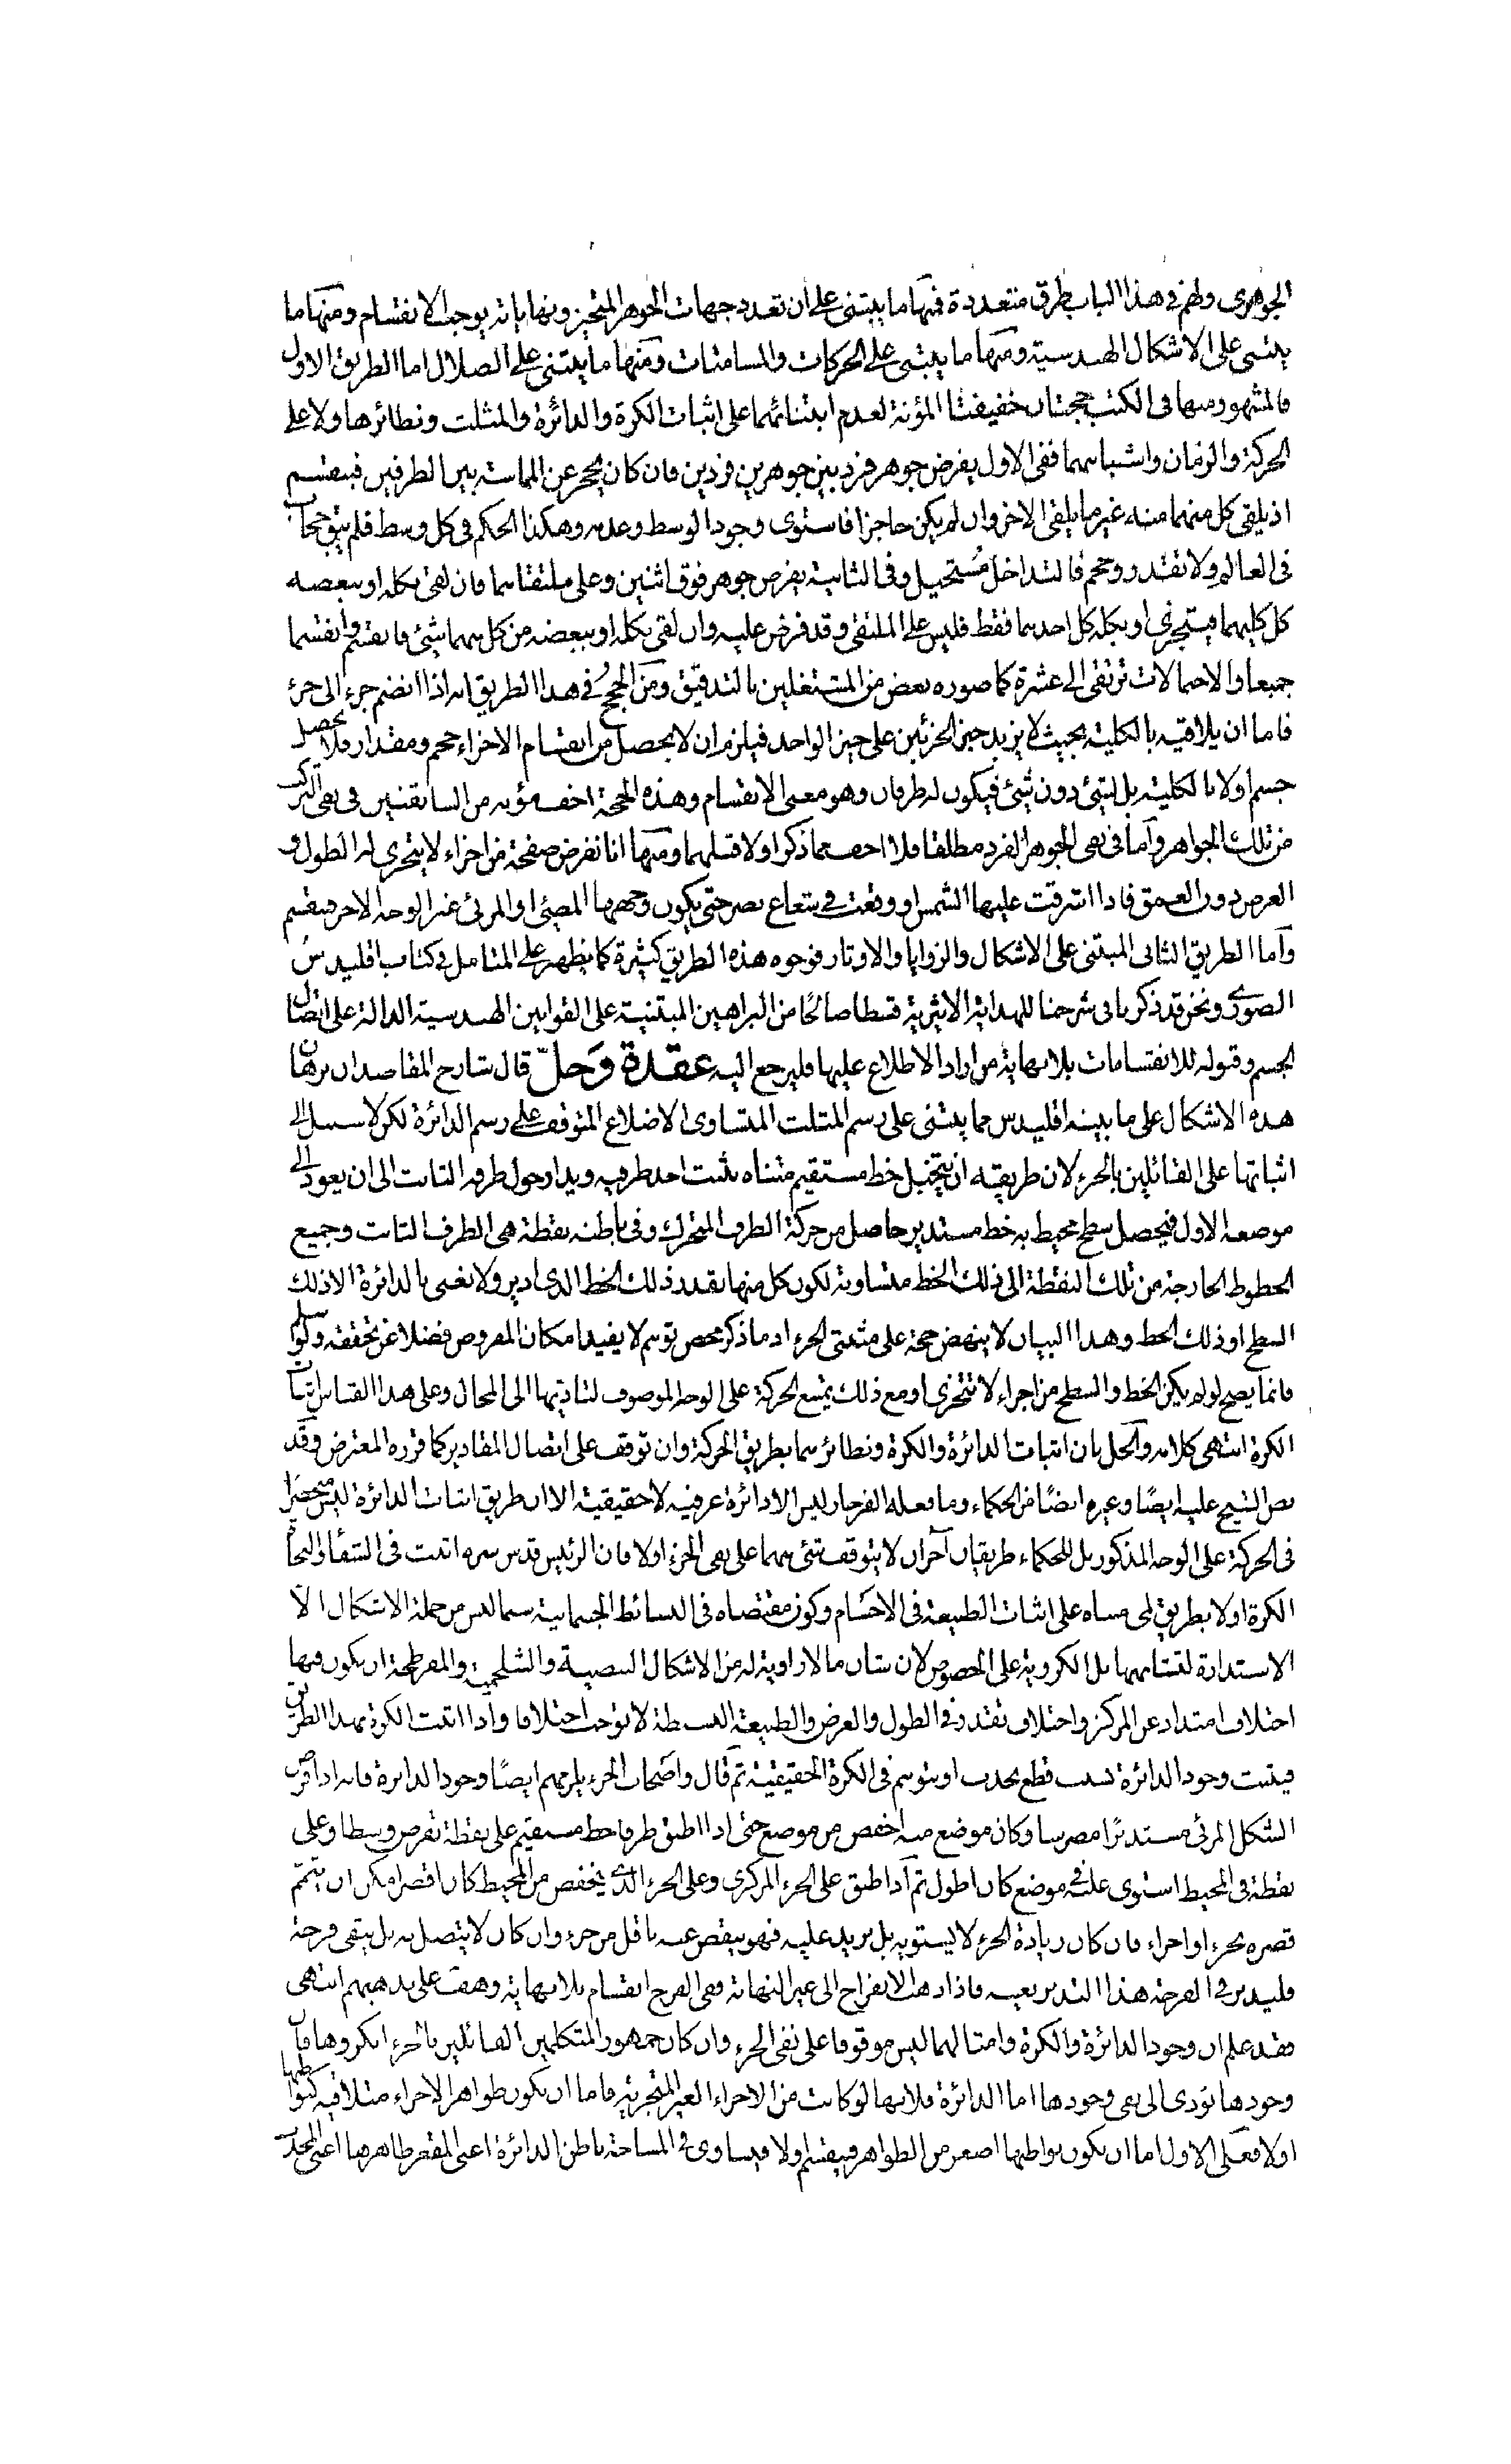 الجوهرى ولهم فى هذا الباب طرق متعددة فمنها ما يبتنى على أن تعدد جهات الجوهر المتحيز ونهاياته يوجب الانقسام ومنها ما
يبتنى على الاشكال الهندسية ومنها ما يبتنى على الحركات والمسامتات ومنها ما يبتنى على الظلال اما الطريق الاول
فالمشهور منها فى الكتب حجتان خفيفتا المؤنة لعدم ابتنائهما على اثبات الكرة والدائرة والمثلث ونظائرها ولا على
الحركة والزمان واشباههما ففى الاول يفرض جوهر فرد بين جوهرين فردين فان كان يحجز عن المماسة بين الطرفين فينقسم
اذ يلقى كل منهما منه غير ما يلقى الاخر وان لم يكن حاجزا فاستوى وجود الوسط وعدمه وهكذا الحكم فى كل وسط فلم يبق حجاب
فى العالم ولا تقدر وحجم فالتداخل مستحيل وفى الثانية يفرض جوهر فوق اثنين وعلى ملتقاهما فان لقى بكله او ببعضه
كل كليهما فيتجزى او بكله كل احدهما فقط فليس على الملتقى وقد فرض عليه وان لقى بكله او ببعضه من كل منهما شيئ فانقسم وانقسما
جميعا والاحتمالات ترتقى الى عشرة كما صوره بعض من المشتغلين بالتدقيق ومن الحجج فى هذا الطريق انه اذا انضم جزء الى جزء
فاما ان يلاقيه بالكلية بحيث لا يزيد حيز الجزئين على حيز الواحد فيلزم ان لا يحصل من انقسام الاجزاء حجم ومقدار فلا يحصل
جسم اولا بالكلية بل بشيئ دون شيئ فيكون له طرفان وهو معنى الانقسام وهذه الحجة اخف مؤنه من السابقتين فى نفى التركب
من تلك الجواهر وأما فى نفى الجوهر الفرد مطلقا فلا اخف مما ذكر اولا قبلهما ومنها انا نفرض صفحة من اجزاء لا يتجزى له الطول و
العرض دون العمق فاذا اشرقت عليها الشمس او وقعت فى شعاع بصر حتى يكون وجهها المضئ او المرئى غير الوجه الاخر فينقسم
وأما الطريق الثانى المبتنى على الاشكال والزوايا والاوتار فوجوه هذه الطريق كثيرة كما يظهر على المتامل فى كتاب اقليدس
الصورى ونحن قد ذكرنا فى شرحنا للهداية الاثيرية قسطا صالحا من البراهين المبتنية على القوانين الهندسية الدالة على اتصال
الجسم وقبوله للانقسامات بلا نهاية من اراد الاطلاع عليها فليرجع اليه عقدة وحل قال شارح المقاصد ان برهان
هذه الاشكال على ما بينه اقليدس مما يبتنى على رسم المثلث المتساوى الاضلاع المتوقف على رسم الدائرة لكن لا سبيل الى
اثباتها على القائلين بالجزء لان طريقه ان يتخيل خط مستقيم متناه يثبت احد طرفيه ويدار حول طرفه الثابت الى ان يعود الى
موضعه الاول فيحصل سطح يحيط به خط مستدير حاصل من حركة الطرف المتحرك وفى باطنه نقطة هى الطرف الثابت وجميع
الخطوط الخارجة من تلك النقطة الى ذلك الخط متساوية لكون كل منها بقدر ذلك الخط الذى ادير ولا نعنى بالدائرة الا ذلك
السطح او ذلك الخط وهذا البيان لا ينهض حجة على مثبتى الجزء اذ ما ذكر محض توهم لا يفيد امكان المفروض فضلا عن تحققه ولو سلم
فانما يصح لو لم يكن الخط والسطح من اجزاء لا تتجزى اذ مع ذلك يمتنع الحركة على الوجه الموصوف لتاديتها الى المحال وعلى هذا القياس اثبات
الكرة انتهى كلامه والحل بان اثبات الدائرة والكرة ونظائرهما بطريق الحركة وان توقف على اتصال المقادير كما قرره المعترض وقد
نص الشيخ عليه ايضا وغيره ايضا من الحكماء وما فعله الفرجار ليس الا دائرة عرفية لا حقيقية الا ان طريق اثبات الدائرة ليس منحصرا
فى الحركة على الوجه المذكور بل للحكماء طريقان آخران لا يتوقف شئ منهما على نفى الجزء اولا فان الرئيس قدس سره اثبت فى الشفا والنجاة
الكرة اولا بطريق لمى مبناه على اثبات الطبيعة فى الاجسام وكون مقتضاه فى البسائط الجسمانية سيما ليس من جملة الاشكال الا
الاستدارة لتشابهها بل الكروية على الخصوص لان شان ما لا زاوية له من الاشكال البيضية والشلجمية والمفرطحة ان يكون فيها
اختلاف امتداد عن المركز واختلاف تقدر فى الطول والعرض والطبيعة البسيطة لا توجب اختلافا واذا اثبت الكرة بهذا الطريق
فيثبت وجود الدائرة بسبب قطع يحدث او يتوهم فى الكرة الحقيقية ثم قال واصحاب الجزء يلزمهم ايضا وجود الدائرة فانه اذا فرض
الشكل المرئى مستديرا مضرسا وكان موضع منه اخفض من موضع حتى اذا اطبق طرفا خط مستقيم على نقطة تفرض وسطا وعلى
نقطة فى المحيط استوى عليه فى موضع كان اطول ثم اذا اطبق على الجزء المركزى وعلى الجزء الذى ينخفض من المحيط كان اقصر امكن ان يتمم
قصره بجزء او اجزاء فان كان زيادة الجزء لا يستويه بل يزيد عليه فهو ينقص عنه باقل من جزء وان كان لا يتصل به بل يبقى فرجة
فليدبر فى الفرجة هذا التدبير بعينه فاذا ذهب الانفراج الى غير النهاية ففى الفرج انقسام بلا نهاية وهف على مذهبهم انتهى
فقد علم ان وجود الدائرة والكرة وامثالهما ليس موقوفا على نفى الجزء وان كان جمهور المتكلمين القائلين بالجزء انكروها فان
وجودها تؤدى الى نفى وجودها اما الدائرة فلانها لو كانت من الاجزاء الغير المتجزية فاما ان يكون ظواهر الاجزاء متلاقية كبواطنها
اولا فعلى الاول اما ان يكون بواطنها اصغر من الظواهر فينقسم اولا فيساوى فى المساحة باطن الدائرة اعنى المقعر ظاهرها اعنى المحدب